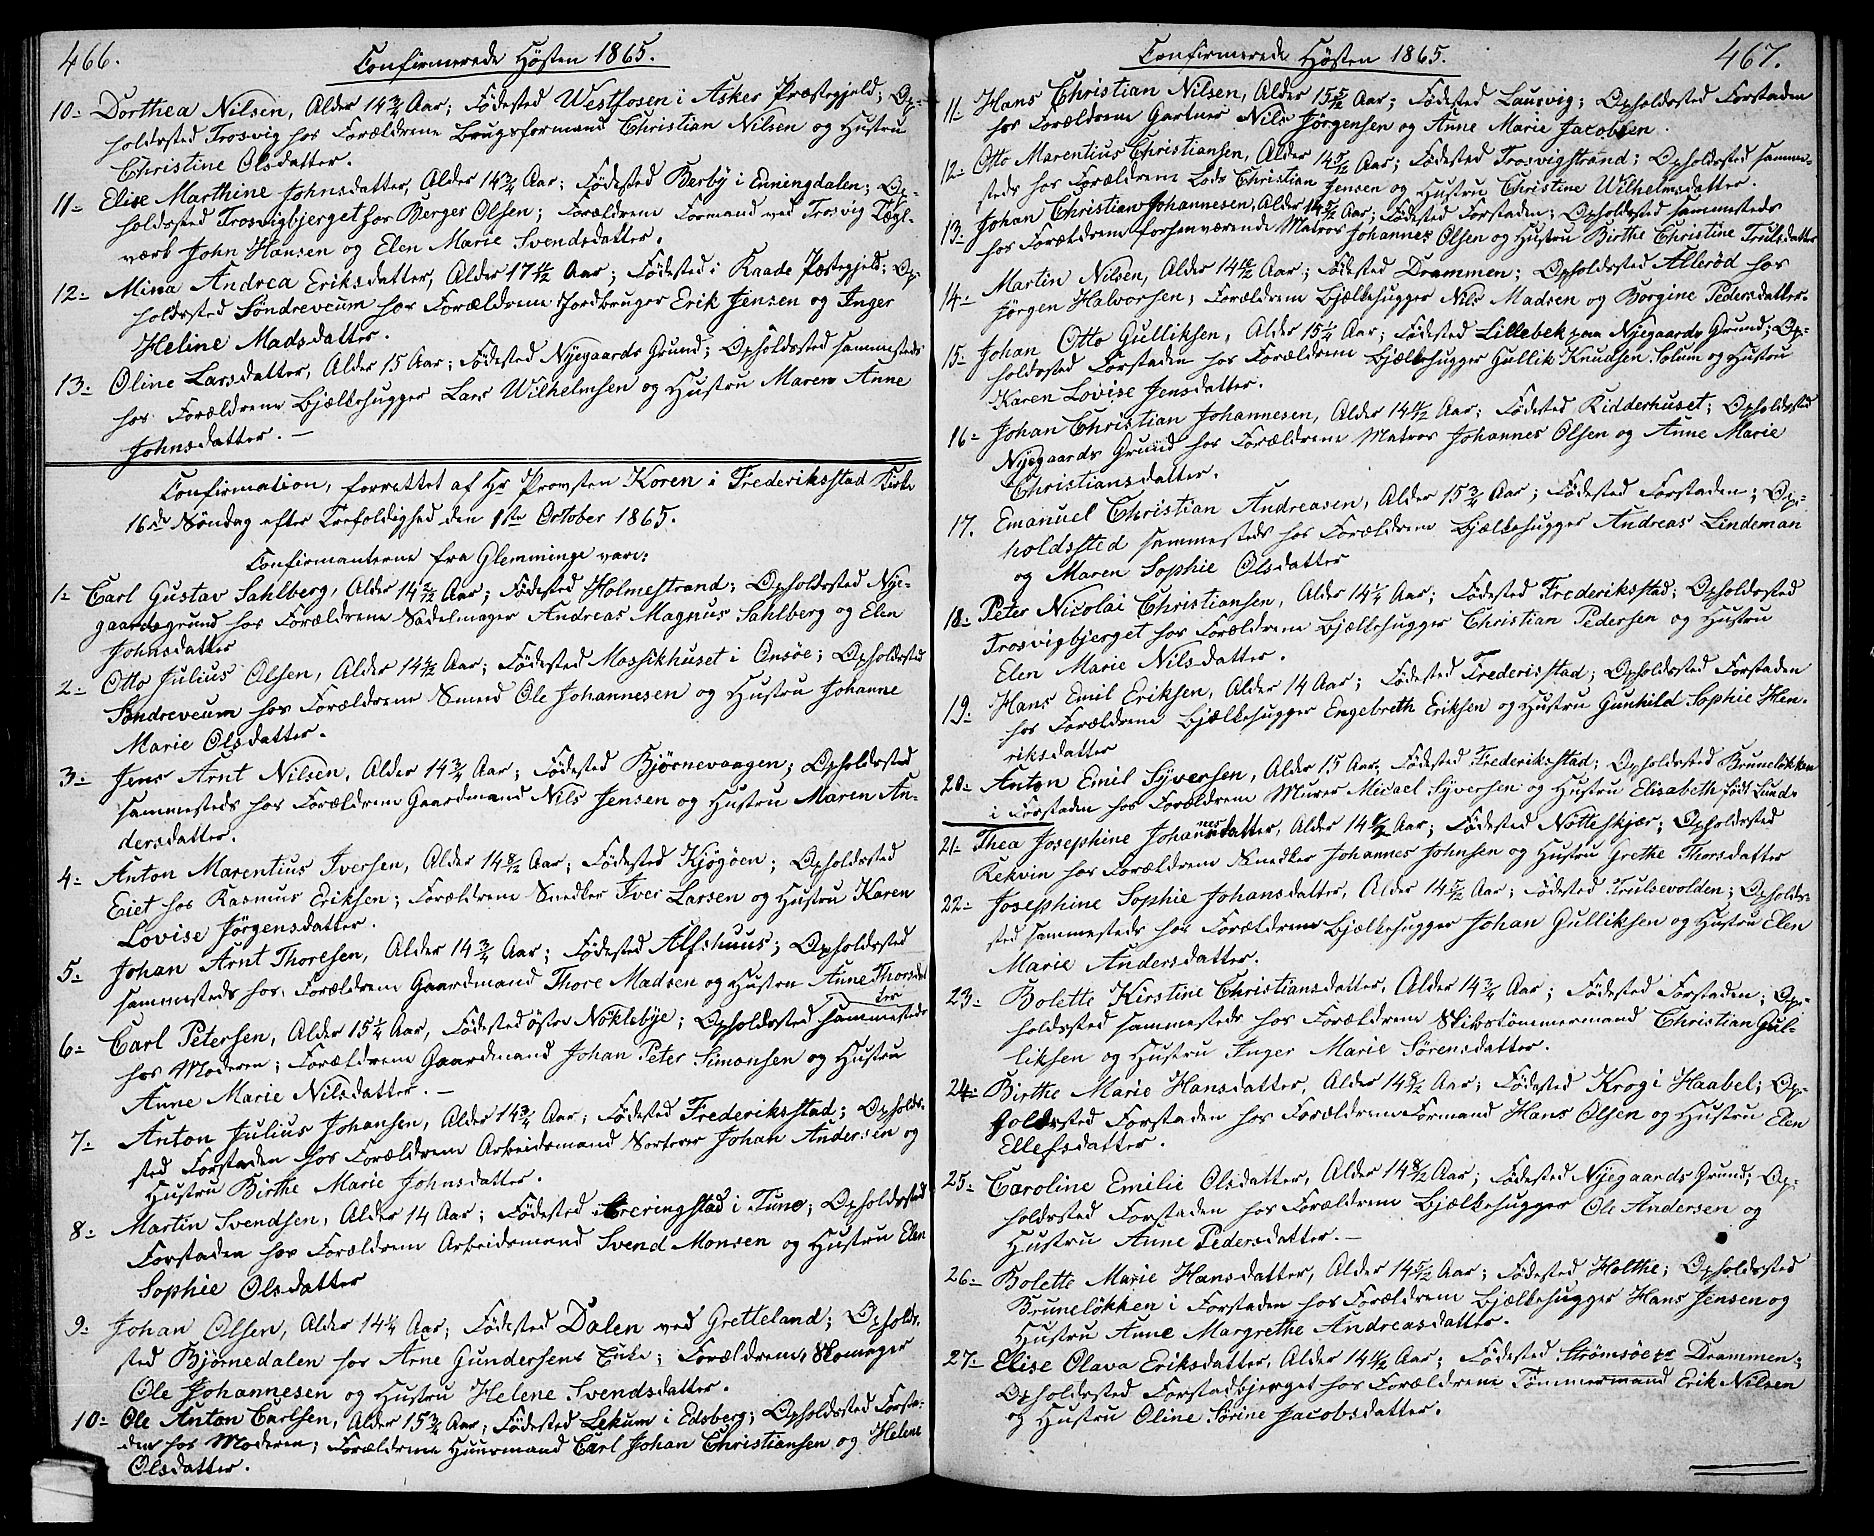 466.
Confirmerede Høsten 1865.
10- Dorthea Nilsen, Alder 14 3/4 Aar; Fødested Westfosen i Asker Præstegjeld; Op-
holdssted Trosvig hos Forældrene Brugsformand Christian Nilsen og Hustru
Christine Olsdatter.
11- Elise Marthine Johnsdatter, Alder 14 3/4 Aar; Fødested Berby i Enningdalen; Op-
holdssted Trosvigbjerget hos Berger Olsen; Forældrene Formand ved Trosvig Tegl-
værk John Hansen og Elen Marie Svendsdatter.
12- Mina Andrea Eriksdatter, Alder 17 Aar; Fødested i Raade Præstegjeld; Op-
holdssted Søndreveum hos Forældrene Jordbruger Erik Jensen og Inger
Heline Madsdatter.
13- Oline Larsdatter, Alder 15 Aar; Fødested Nyegaards Grund; Opholdssted sammesteds
hos Forældrene Bjælkehugger Lars Wilhelmsen og Hustru Maren Anne
Johnsdatter. —
Confirmation, forrettet af Hr Provsten Koren i Frederiksstad Kirke
16de Søndag efter Trefoldighed den 1ste October 1865.
Confirmanterne fra Glemminge vare:
1- Carl Gustav Sahlberg, Alder 14 Aar; Fødested Holmestrand; Opholdssted Nye-
gaardsgrund hos Forældrene Sadelmager Andreas Magnus Sahlberg og Elen
Johnsdatter
2- Otto Julius Olsen, Alder 14 Aar; Fødested Mossikhuset i Onsøe; Opholdssted
Søndreveum hos Forældrene Smed Ole Johannesen og Hustru Johanne
Marie Olsdatter.
3- Jens Arnt Nilsen, Alder 14 3/4 Aar; Fødested Bjørnevaagen; Opholdssted
sammesteds hos Forældrene Gaardmand Nils Jensen og Hustru Maren An-
dersdatter.
4- Anton Marentius Iversen, Alder 14 8/12 Aar; Fødested Kjøgøen; Opholdssted
Eiet hos Rasmus Eriksen; Forældrene Snedker Iver Larsen og Hustru Karen
Lovise Jørgensdatter.
5- Johan Arnt Thoresen, Alder 14 3/4 Aar; Fødested Alfshuus; Opholdssted
sammesteds hos Forældrene Gaardmand Thore Madsen og Hustru Anne Thorsdat
ter
6- Carl Petersen, Alder 15 1/4 Aar, Fødested østre Nøklebye; Opholdssted sammesteds
hos Moderen; Forældrene Gaardmand Johan Peter Simonsen og Hustru
Anne Marie Nilsdatter. —
7- Anton Julius Johansen, Alder 14 3/4 Aar; Fødested Frederiksstad; Opholds-
sted Forstaden hos Forældrene Arbeidsmand Sorterer Johan Andersen og
Hustru Birthe Marie Johnsdatter.
8- Martin Svendsen, Alder 14 Aar; Fødested i Tune; Opholdssted
Forstaden hos Forældrene Arbeidsmand Svend Monsen og Hustru Elen
Sophie Olsdatter
9- Johan Olsen, Alder 14 1/4 Aar; Fødested Dalen ved Gretteland; Opholds-
sted Bjørnedalen hos Arne Gundersens Enke; Forældrene Skomager
Ole Johannesen og Hustru Helene Svendsdatter.
10- Ole Anton Carlsen, Alder 15 3/4 Aar; Fødested Lekum i Edsberg; Opholdssted Forsta-
den hos Moderen; Forældrene Huusmand Carl Johan Christiansen og Helene
Olsdatter.
Confirmerede Høsten 1865.
467.
11- Hans Christian Nilsen, Alder 15 5/12 Aar; Fødested Laurvig; Opholdssted Forstaden
hos Forældrene Gartner Nils Jørgensen og Anne Marie Jacobsen.
12- Otto Marentius Christiansen, Alder 14 5/12 Aar; Fødested Trosvigstrand; Opholdssted samme-
steds hos Forældrene Lods Christian Jensen og Hustru Christine Wilhelmsdatter.
13- Johan Christian Johannesen, Alder 14 5/12 Aar; Fødested Forstaden; Opholdssted sammesteds
hos Forældrene forhenværende Matros Johannes Olsen og Hustru Birthe Christine Trulsdatter
14- Martin Nilsen, Alder 14 10/12 Aar; Fødested Drammen; Opholdssted Allerød hos
Jørgen Halvorsen; Forældrene Bjælkehugger Nils Madsen og Borgine Pedersdatter.
15- Johan Otto Gulliksen, Alder 15 1/4 Aar; Fødested Lillebek paa Nyegaards Grund; Op-
holdssted Forstaden hos Forældrene Bjælkehugger Gullik Knudsen Solum og Hustru
Karen Lovise Jensdatter.
16- Johan Christian Johannesen, Alder 14 Aar; Fødested Ridderhuset; Opholdssted
Nyegaards Grund hos Forældrene Matros Johannes Olsen og Anne Marie
Christiansdatter.
17. Emanuel Christian Andreasen, Alder 15 3/4 Aar; Fødested Forstaden; Op-
holdssted sammesteds hos Forældrene Bjælkehugger Andreas Lindeman
og Maren Sophie Olsdatter
18- Peter Nicolai Christiansen, Alder 14 1/4 Aar; Fødested Frederiksstad; Opholdssted
Trosvigbjerget hos Forældrene Bjælkehugger Christian Pedersen og Hustru
Elen Marie Nilsdatter.
19- Hans Emil Eriksen, Alder 14 Aar; Fødested Frederisstad; Opholdssted Forstaden
hos Forældrene Bjælkehugger Engebreth Eriksen og Hustru Gunhild Sophie Hen-
riksdatter
20- Anton Emil Syversen, Alder 15 Aar; Fødested Frederiksstad; Opholdssted Bruneløkken
i Forstaden hos Forældrene Murer Micael Syversen og Hustru Elisabeth født Lund.
21- Thea Josephine Johannesdatter, Alder 14 Aar; Fødested Nøtteskjær; Opholdssted
Rekvin hos Forældrene Snedker Johannes Johnsen og Hustru Grethe Thorsdatter
22- Josephine Sophie Johansdatter, Alder 14 5/12 Aar; Fødested Trulsevolden; Opholds-
sted sammesteds hos Forældrene Bjælkehugger Johan Gulliksen og Hustru Elen
Marie Andersdatter.
23- Bolette Kirstine Christiansdatter, Alder 14 3/4 Aar; Fødested Forstaden; Op-
holdssted sammesteds hos Forældrene Skibstømmermand Christian Gul-
liksen og Hustru Inger Marie Sørensdatter.
24- Birthe Marie Hansdatter, Alder 14 8/12 Aar; Fødested Krog i Haabel; Op-
holdssted Forstaden hos Forældrene Formand Hans Olsen og Hustru Elen
Ellefsdatter.
25- Caroline Emilie Olsdatter, Alder 14 8/12 Aar; Fødested Nyegaards Grund; Op-
holdssted Forstaden hos Forældrene Bjælkehugger Ole Andersen og
Hustru Anne Pedersdatter. —
26- Bolette Marie Hansdatter, Alder 14 5/12 Aar; Fødested Holthe; Opholdssted
Bruneløkken i Forstaden hos Forældrene Bjælkehugger Hans Jensen og
Hustru Anne Margrethe Andreasdatter.
27- Elise Olava Eriksdatter, Alder 14 1/2 Aar; Fødested Strømsøe Drammen;
Opholdssted Forstadbjerget hos Forældrene Tømmermand Erik Nilsen
og Hustru Oline Sørine Jacobsdatter.